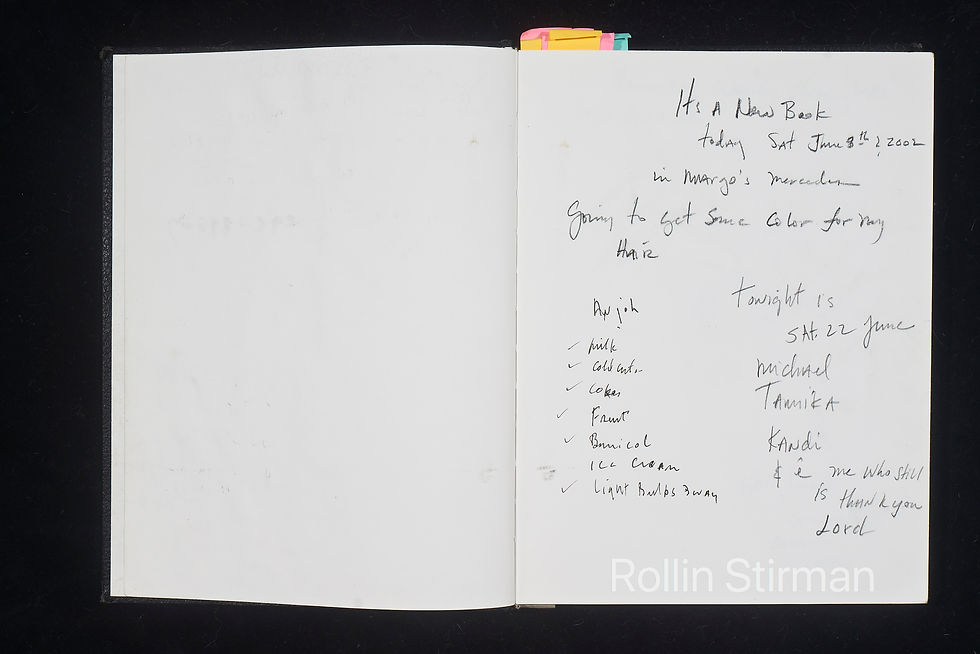 It's A New Book
today Sat June 8th, 2002
in Margo's Mercedes
Going to get Some Color for my
Hair
milk
cold cuts
Cokes
Fruit
ice cream
light Bulbs 3way
tonight is
SAT. 22 June
Michael
TAMIKA
KANDi
& me who still
is thank you
Lord
Rollin Stirman